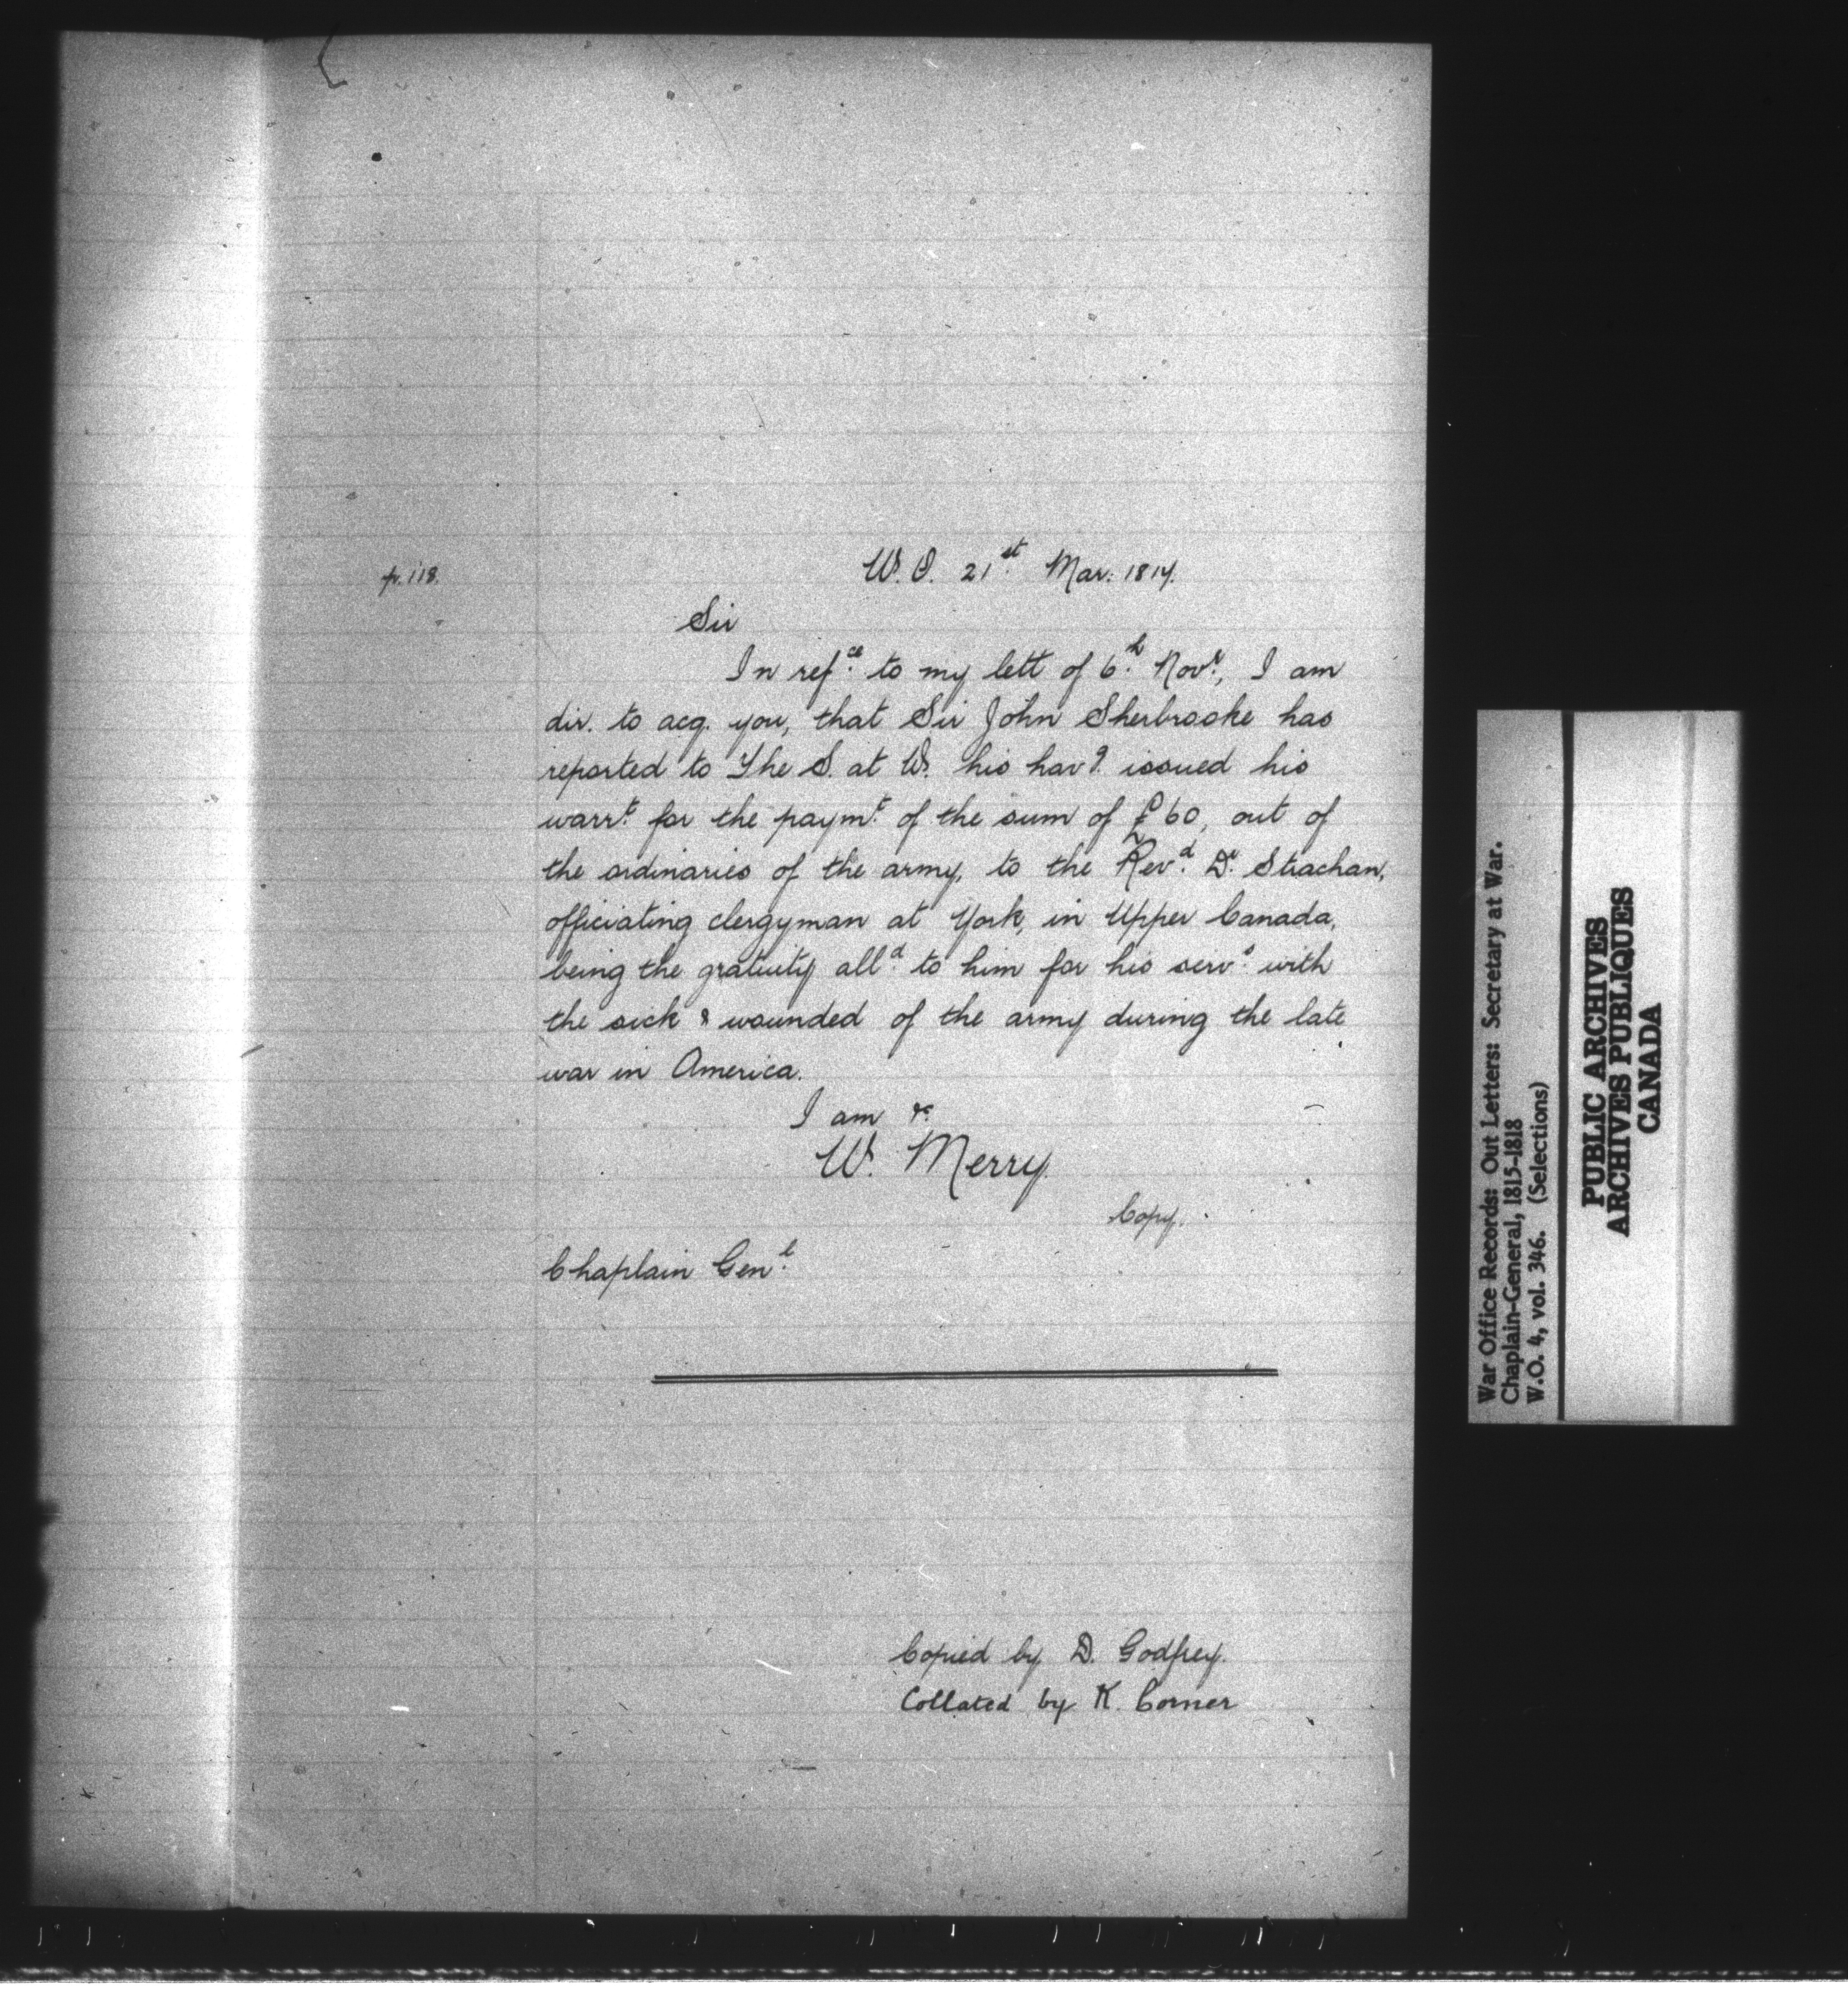 p. 118.
W. O. 21st Mar: 1817.
Sir
In refce to my lett of 6th Novr, I am
dir. to acq. you, that Sir John Sherbrooke has
reported to The S. at W. his havg issued his
warrt for the paymt of the sum of £60, out of
the ordinaries of the army, to the Revd Dr Strachan,
officiating clergyman at York, in Upper Canada,
being the gratuity alld to him for his servs with
the sick & wounded of the army during the late
war in America.
I am &c.
W. Merry.
Copy.
Chaplain Genl
Copied by D. Godfrey.
Collated by K. Corner
War Office Records: Out Letters: Secretary at War.
Chaplain-General, 1815-1818
W.O. 4, vol. 346. (Selections)
PUBLIC ARCHIVES
ARCHIVES PUBLIQUES
CANADA